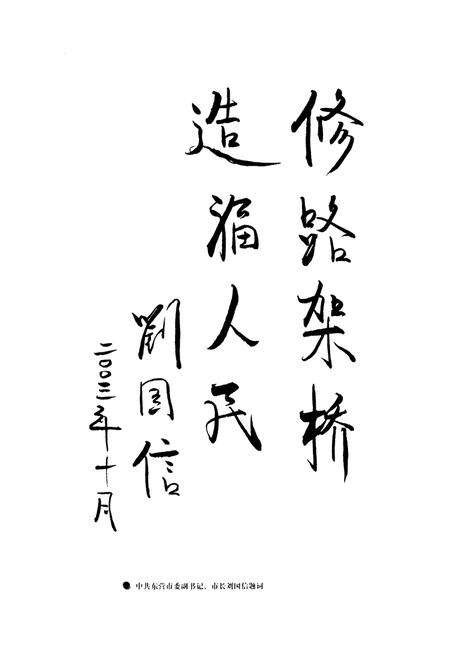 修路架桥
造福人民
劉国信
二〇〇三年十月
中共东营市委副书记、市长刘国信题词